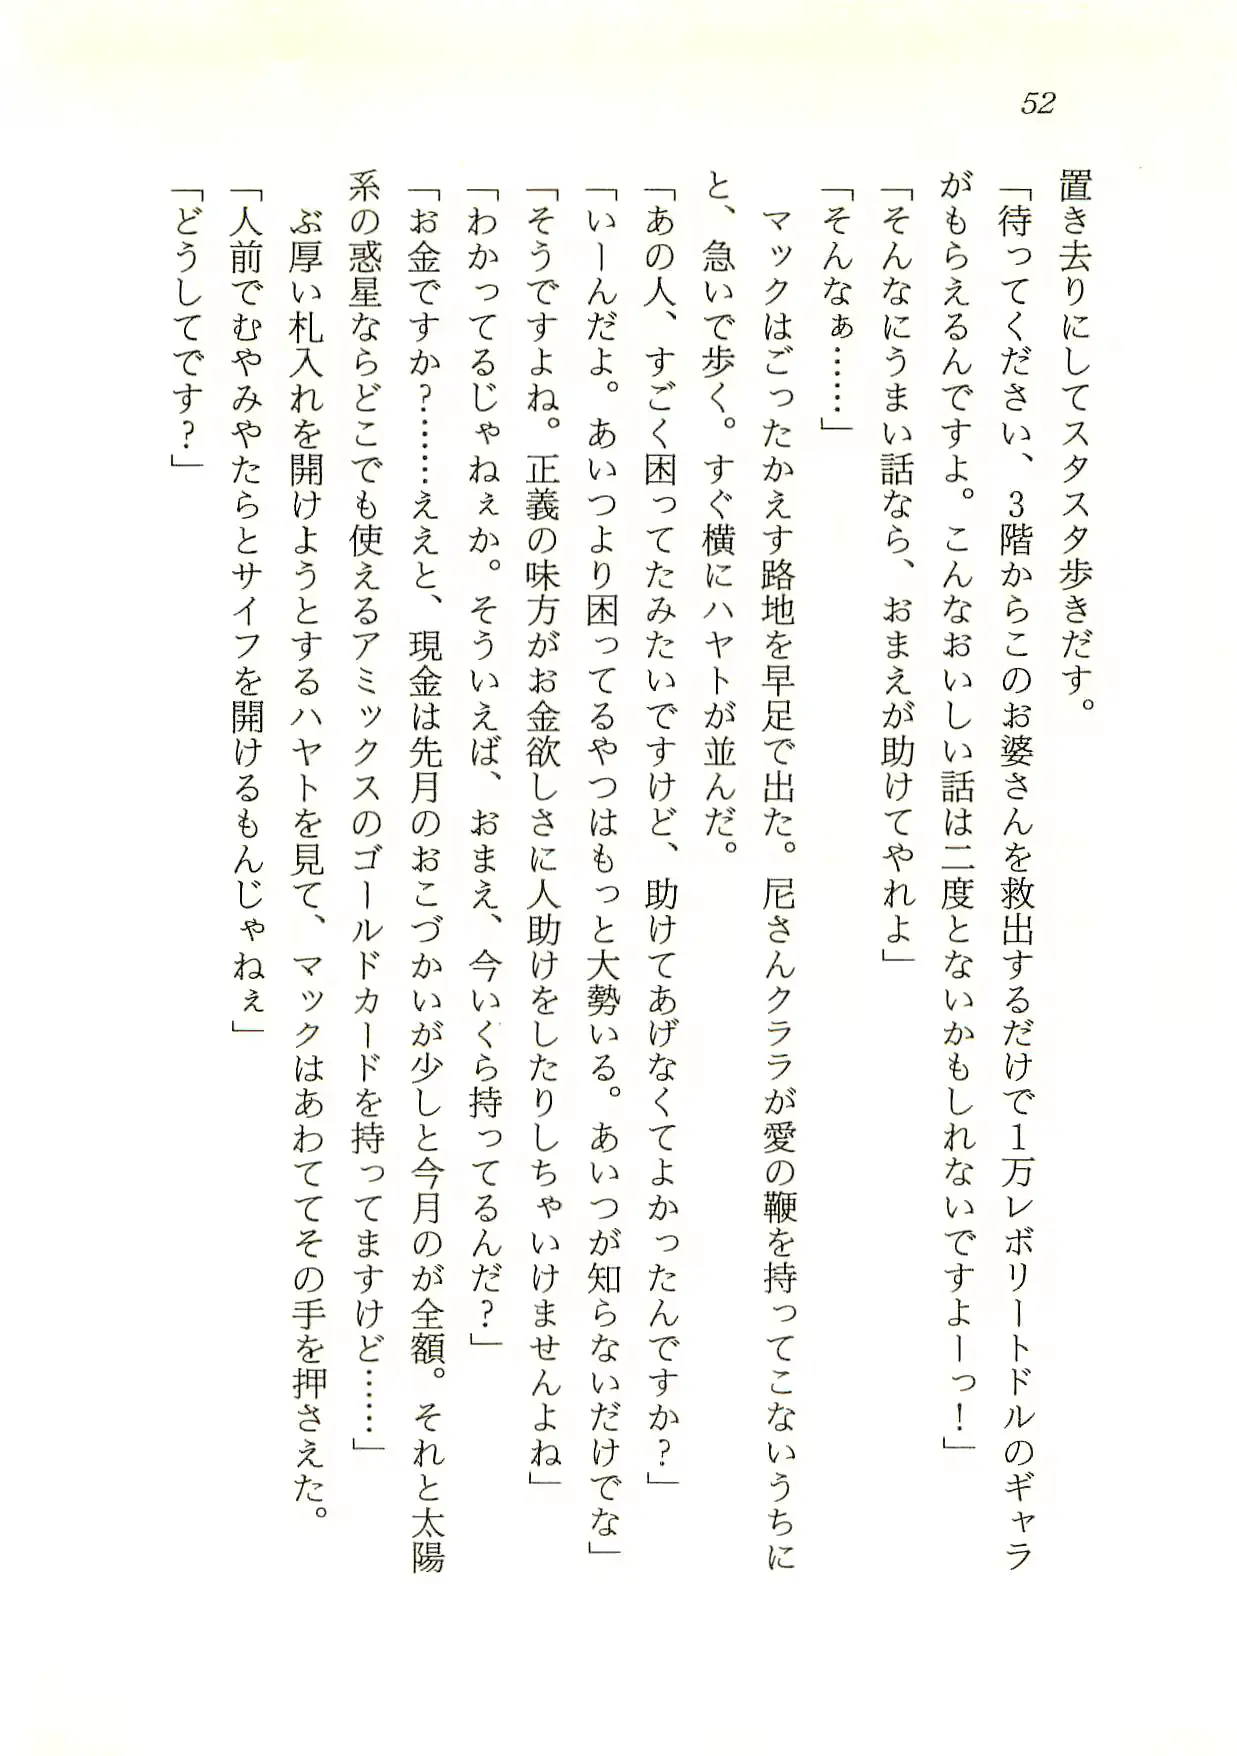 52
置き去りにしてスタスタ歩きだす。
「待ってください、3階からこのお婆さんを救出するだけで1万レボリートドルのギャラ
がもらえるんですよ。こんなおいしい話は二度とないかもしれないですよーっ!」
「そんなにうまい話なら、おまえが助けてやれよ」
「そんなぁ……」
　マックはごったかえす路地を早足で出た。尼さんクララが愛の鞭を持ってこないうちに
と、急いで歩く。すぐ横にハヤトが並んだ。
「あの人、すごく困ってたみたいですけど、助けてあげなくてよかったんですか?」
「いーんだよ。あいつより困ってるやつはもっと大勢いる。あいつが知らないだけでな」
「そうですよね。正義の味方がお金欲しさに人助けをしたりしちゃいけませんよね」
「わかってるじゃねぇか。そういえば、おまえ、今いくら持ってるんだ?」
「お金ですか?……ええと、現金は先月のおこづかいが少しと今月のが全額。それと太陽
系の惑星ならどこでも使えるアミックスのゴールドカードを持ってますけど……」
　ぶ厚い札入れを開けようとするハヤトを見て、マックはあわててその手を押さえた。
「人前でむやみやたらとサイフを開けるもんじゃねぇ」
「どうしてです?」